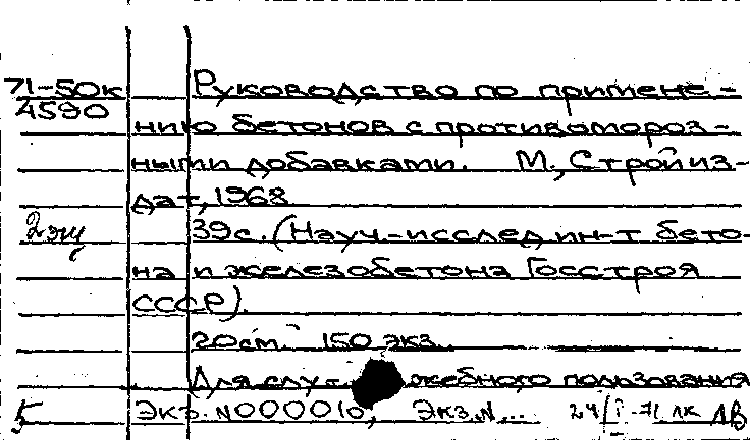 71-50к
4590
Руководство по примене-
нию бетонов с противомороз-
ными добавками. М., Стройиз-
дат, 1968
2 экз
39 с. (Науч.-исслед. ин-т бето-
на и железобетона Госстроя
СССР).
20 см. 150 экз.
Для служебного пользования
5 Экз. N000010, Экз. N... 24/I-71 лк